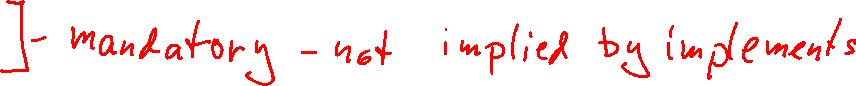 ]- mandatory - not implied by implements